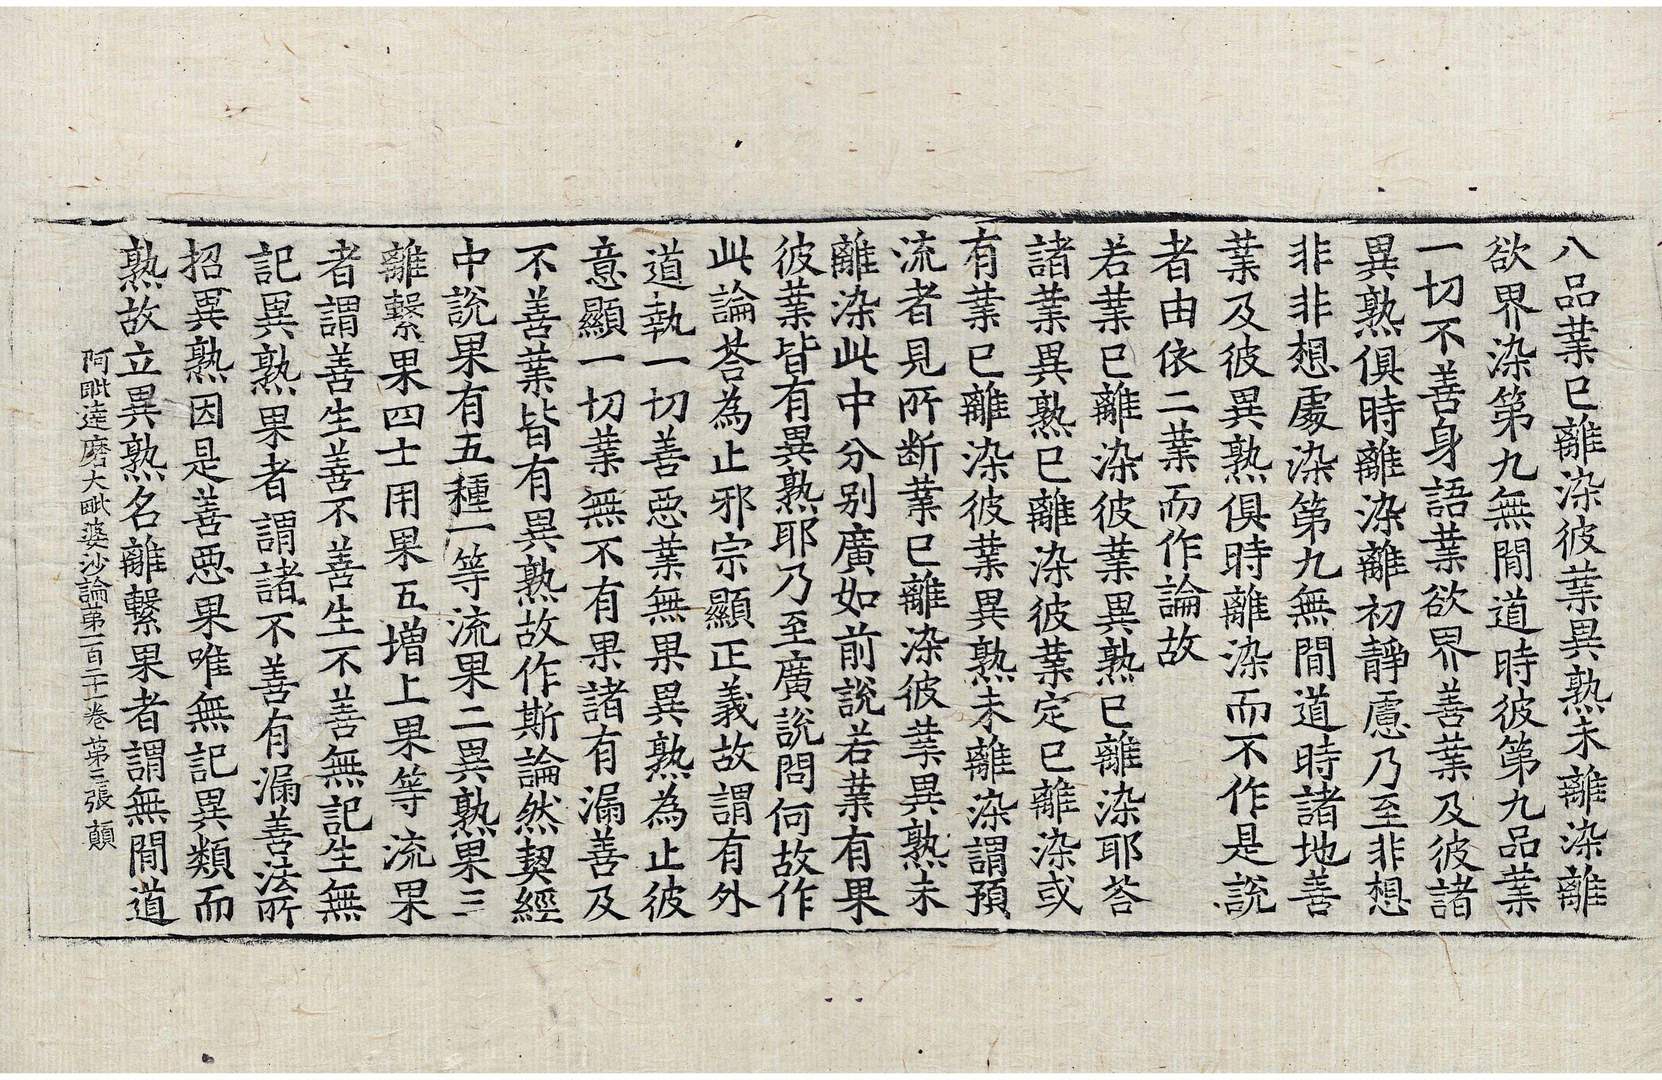 八品業已離染彼業異熟未離染離
欲界染第九無間道時彼第九品業
一切不善身語業欲界善業及彼諸
異熟俱時離染離初靜慮乃至非想
非非想處染第九無間道時諸地善
業及彼異熟俱時離染而不作是說
者由依二業而作論故
若業已離染彼業異熟已離染耶荅
諸業異熟已離染彼業定已離染或
有業已離染彼業異熟未離染謂預
流者見所断業已離染彼業異熟未
離染此中分别廣如前說若業有果
彼業皆有異熟耶乃至廣說問何故作
此論荅為止邪宗顯正義故謂有外
道執一切善惡業無果異熟為止彼
意顯一切業無不有果諸有漏善及
不善業皆有異熟故作斯論然契經
中說果有五種一等流果二異熟果三
離繫果四士用果五增上果等流果
者謂善生善不善生不善無記生無
記異熟果者謂諸不善有漏善法所
招異熟因是善惡果唯無記異類而
熟故立異熟名離繫果者謂無間道
阿毗達磨大毗婆沙論第一百二十一卷 第三張 顛